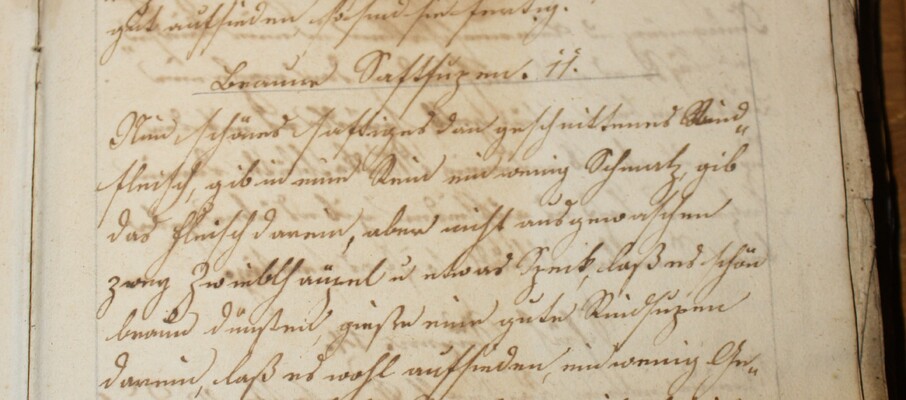 gut aufsieden, so sind sie fertig.
Braune Saftsupen. 11.
Nim schönes saftiges dün geschnittenes Rind„
fleisch, gib in eine Rein ein wenig Schmalz, gib
das Fleisch darein, aber nicht ausgewaschen
zwey Zwieblhäupel u etwas Speck, laß es schön
braun dünsten, gieße eine gute Rindsupen
darein, laß es wohl aufsieden, ein wenig Ge„